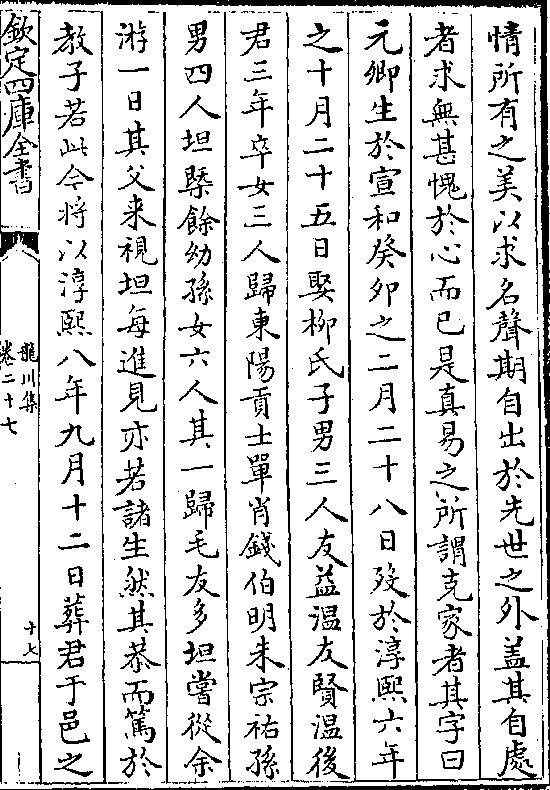 情所有之美以求名聲期自出於先世之外盖其自處
者求無甚愧於心而已是真易之所謂克家者其字曰
元卿生於宣和癸夘之二月二十八日歿於淳熙六年
之十月二十五日娶柳氏子男三人友益温友賢温後
君三年卒女三人歸東陽貢士單肖錢伯明朱宗祐孫
男四人坦墍餘幼孫女六人其一歸毛友多坦嘗從余
游一日其父来視坦每進見亦若諸生然其恭而篤於
教子若此今将以淳熙八年九月十二日葬君于邑之
欽定四庫全書
龍川集
卷二十七
十七